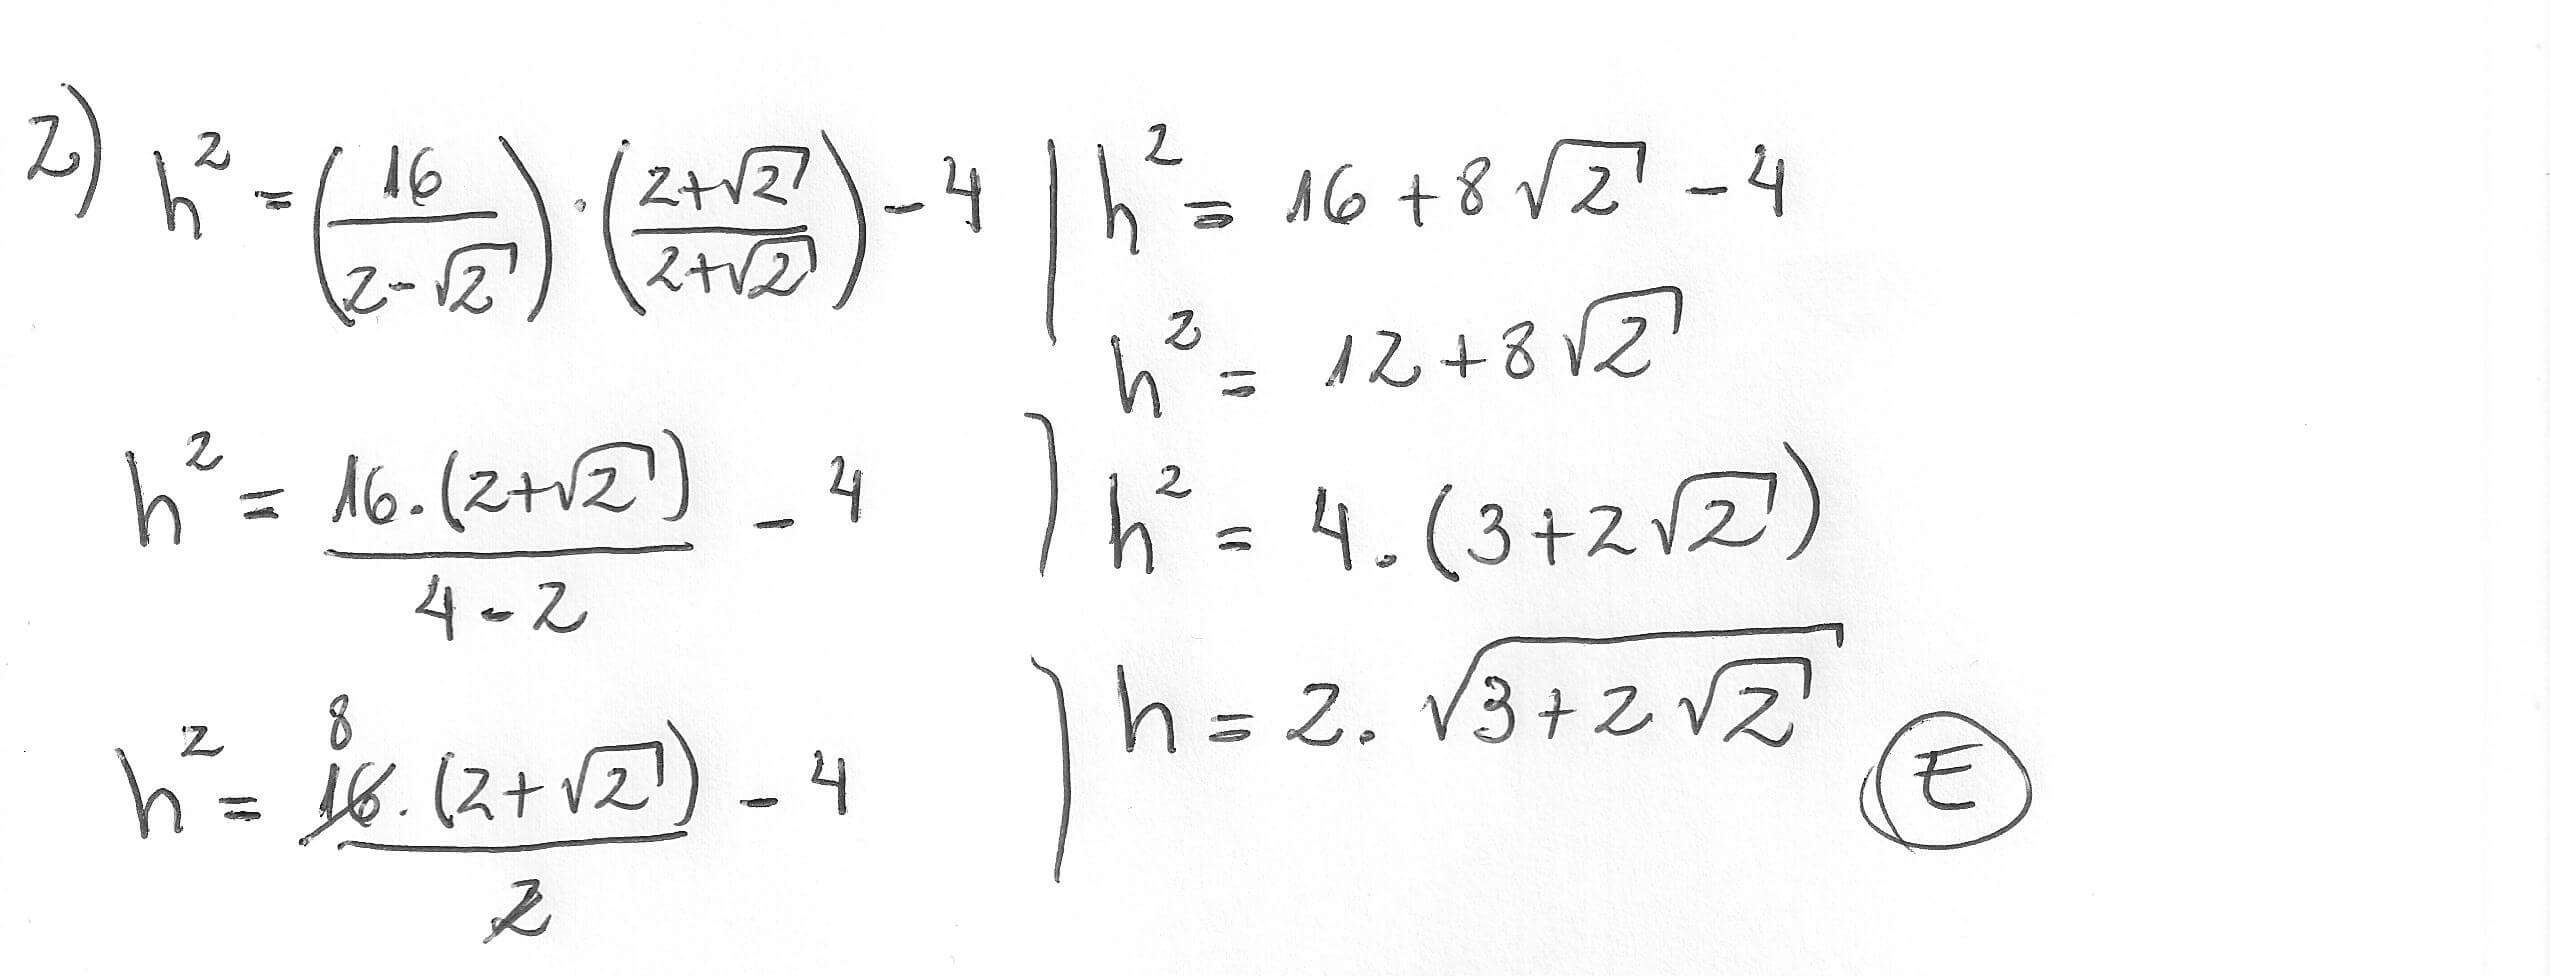 2) h² = (16/(2-√2)) · ((2+√2)/(2+√2)) - 4
h² = 16·(2+√2)/(4-2) - 4
h² = 16·(2+√2)/2 - 4
8
h² = 16 + 8√2 - 4
h² = 12 + 8√2
h² = 4·(3+2√2)
h = 2·√(3+2√2)
E